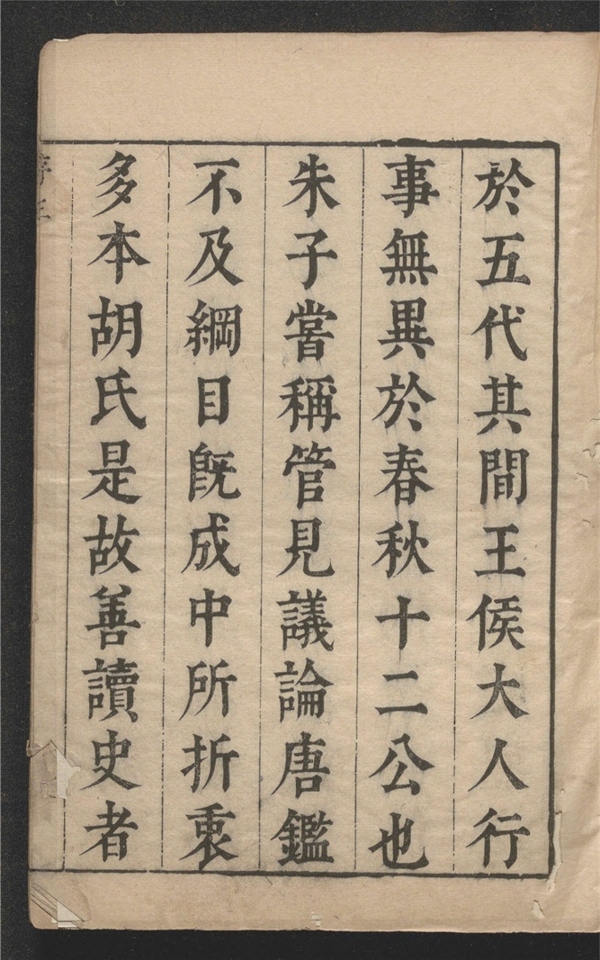 於五代其間王侯大人行
事無異於春秋十二公也
朱子嘗稱管見議論唐鑑
不及綱目旣成中所折衷
多本胡氏是故善讀史者